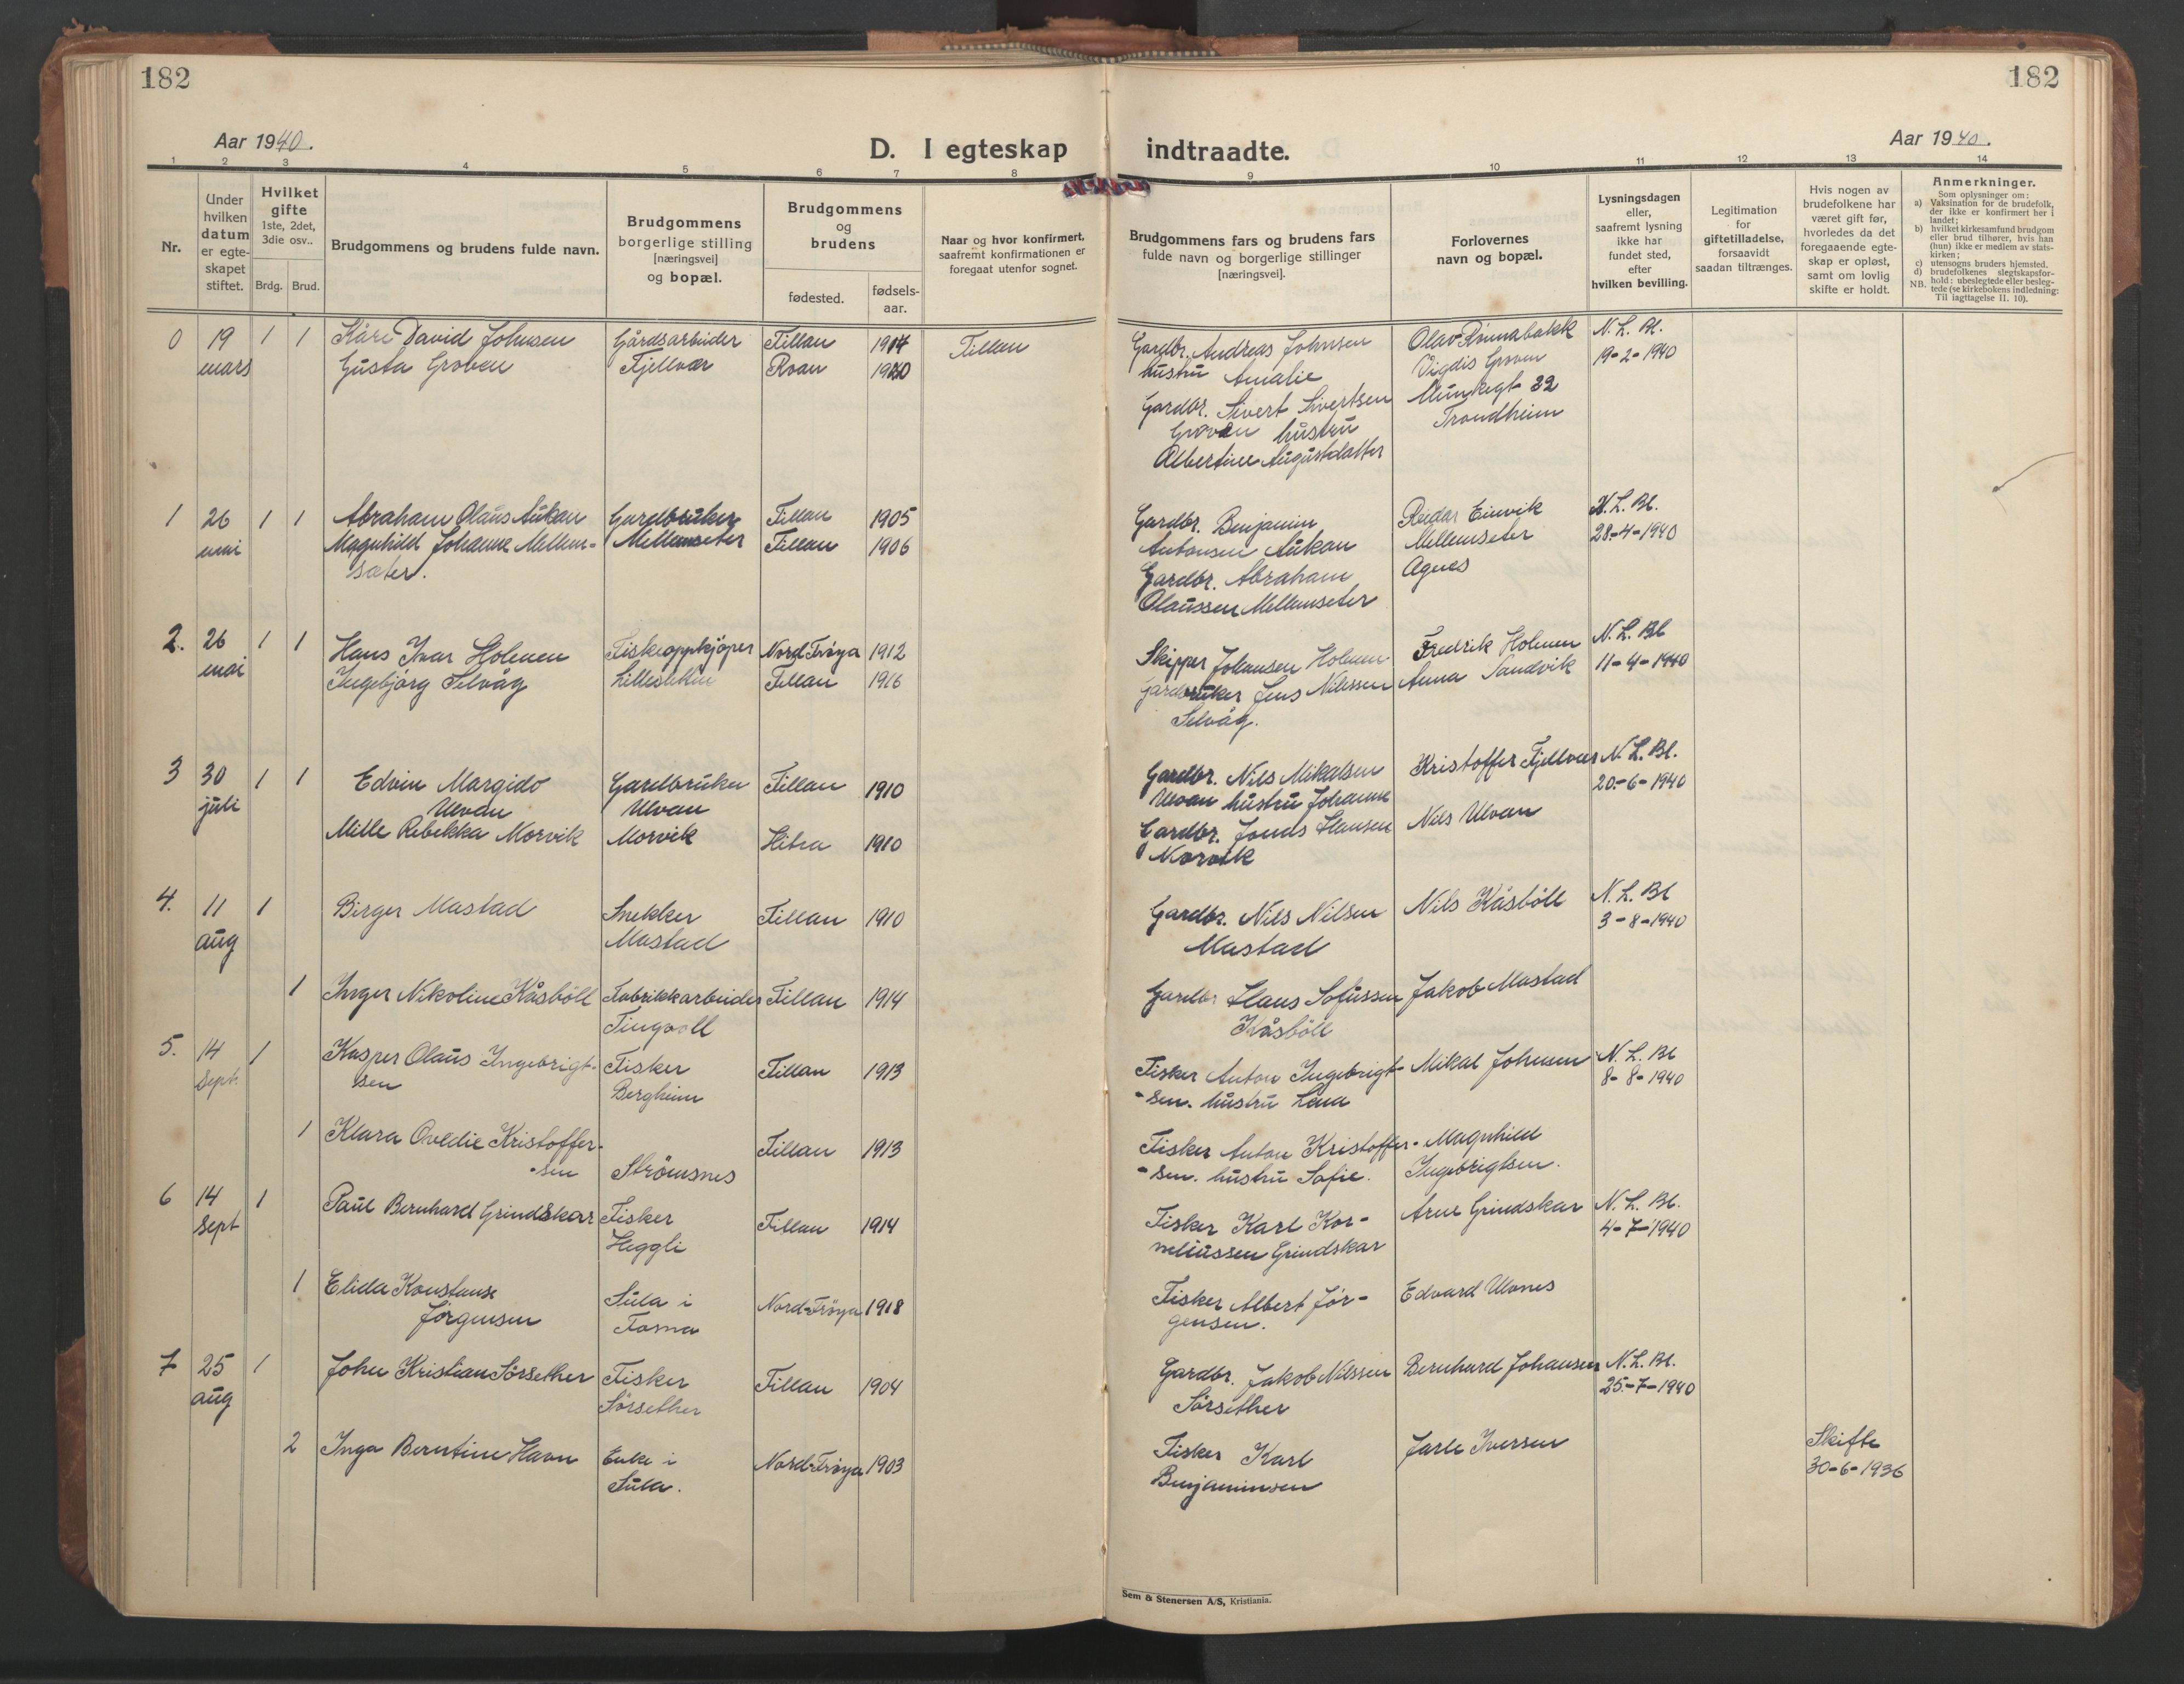 182
182
Aar 1940.
D. I egteskap indtraadte.
Aar 1940.
1 2 3 4 5 6 7 8 9 10 11 12 13 14
Nr.
Under hvilken datum er egte-skapet stiftet.
Hvilket gifte 1ste, 2det, 3die osv..
Brdg. Brud.
Brudgommens og brudens fulde navn.
Brudgommens borgerlige stilling [næringsvei] og bopæl.
Brudgommens og brudens
fødested.
fødsels-aar.
Naar og hvor konfirmert, saafremt konfirmationen er foregaat utenfor sognet.
Brudgommens fars og brudens fars fulde navn og borgerlige stillinger [næringsvei].
Forlovernes navn og bopæl.
Lysningsdagen eller, saafremt lysning ikke har fundet sted, efter hvilken bevilling.
Legitimation for giftetilladelse, forsaavidt saadan tiltrænges.
Hvis nogen av brudefolkene har været gift før, hvorledes da det foregaaende egte-skap er opløst, samt om lovlig skifte er holdt.
Anmerkninger.
Som oplysninger om:
a) Vaksination for de brudefolk, der ikke er konfirmert her i landet;
b) hvilket kirkesamfund brudgom eller brud tilhører, hvis han (hun) ikke er medlem av stats-kirken;
c) utensogns bruders hjemsted.
d) brudefolkenes slegtskapsfor-hold: ubeslegtede eller besleg-tede (se kirkebokens indledning:
NB. Til iagttagelse II. 10).
0 19 1 1 Kåre David Johnsen Gårdsarbeider Fillan 1914 Fillan Gardbr. Andreas Johnsen Olav Rönnabakk N. L. Bl.
mars Gusta Groven Fjellvær Roan 1920 hustru Amalie Vigdis Groven 19-2-1940
Gardbr. Sivert Sivertsen Munkegt 22
Groven hustru Trondheim
Albertine Augustdatter
1 26 1 1 Abraham Olaus Aukan Gardbruker Fillan 1905 Gardbr. Benjamin Reidar Einvik N. L. Bl.
mai Magnhild Johanne Mellem- Mellemseter Fillan 1906 Antonsen Aukan Mellemseter 28-4-1940
sæter. Gardbr. Abraham Agnes
Olaussen Mellemseter
2. 26 1 1 Hans Ivar Holmen Fiskeoppkjøper Nord Frøya 1912 Skipper Johansen Holmen Fredrik Holmen N. L. Bl
mai Ingebjørg Selvåg Fillan 1916 Gardbruker Jens Nilssen Anna Sandvik 11-4-1940
Selvåg.
3 30 1 1 Edvin Margido Gardbruker Fillan 1910 Gardbr. Nils Mikalsen Kristoffer Fjellvær N. L. Bl.
juli Ulvan Ulvan Ulvan hustru Johanne 20-6-1940
Mille Rebekka Morvik Morvik Hitra 1910 Gardbr. Jonas Hansen Nils Ulvan
Morvik
4. 11 1 Birger Mastad Snekker Fillan 1910 Gardbr. Nils Nilsen Nils Kåsböll N. L. Bl
aug Mastad Mastad 3-8-1940
1 Inger Nikoline Kåsböll Fabrikkarbeider Fillan 1914 Gardbr Hans Sofussen Jakob Mastad
Tingvoll Kåsböll
5. 14 1 Kasper Olaus Ingebrigt- Fisker Fillan 1913 Fisker Anton Ingebrigt- Mikal Johnsen N. L. Bl
Sept. sen Bergheim -sen. hustru Lena 8-8-1940
1 Klara Ovedie Kristoffer- Fillan 1913 Fisker Anton Kristoffer- Magnhild
-sen Strömsnes -sen. hustru Sofie. Ingebrigtsen.
6 14 1 Paul Bernhard Grindskar Fisker Fillan 1914 Fisker Karl Kor- Arne Grindskar N. L. Bl.
Sept Heggli neliussen Grindskar 4-7-1940
1 Elida Konstanse Sula i Nord-Frøya 1918 Fisker Albert Jör- Edvard Ulvnes
Jörgensen Fosna gensen.
7 25 1 John Kristian Sörsether Fisker Fillan 1904 Gardbr. Jakob Nilssen Bernhard Johansen N. L. Bl.
aug Sörsether Sörsether 25-7-1940
2 Inga Berntine Havn Enke i Nord-Frøya 1903 Fisker Karl Jarle Iversen Skifte
Sula. Benjaminsen 30-6-1936
Sem & Stenersen A/S, Kristiania.